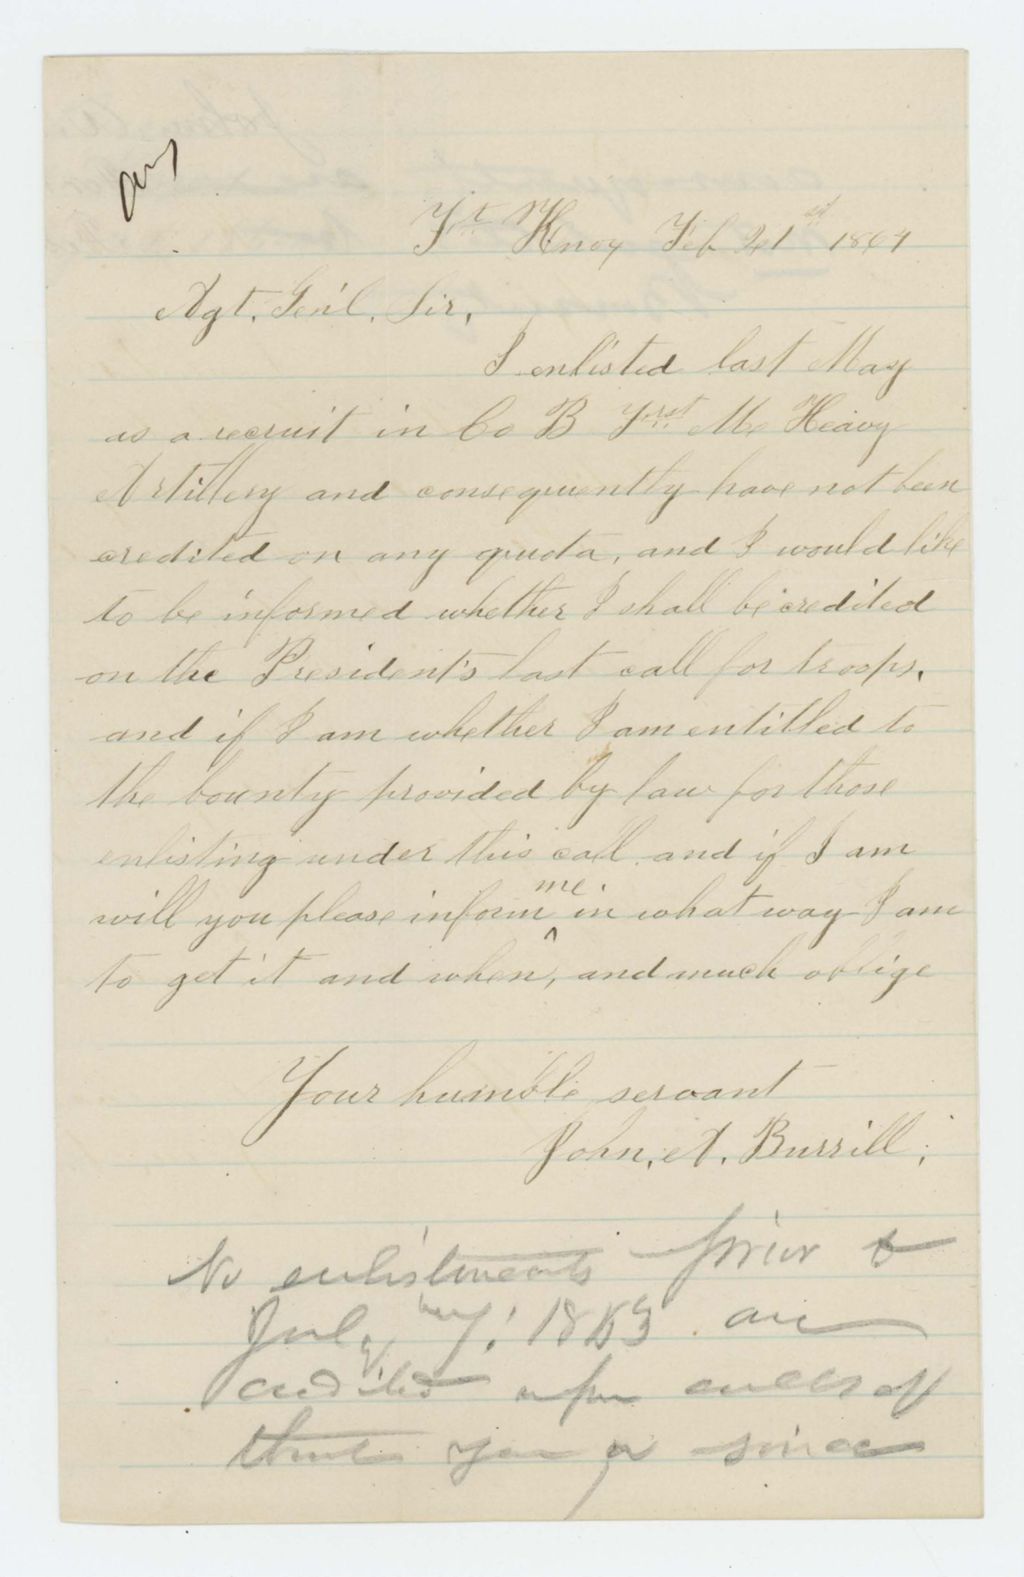 Ans
Ft Knox Feb 21st 1864
Agt. Gen'l. Sir,
I enlisted last May
as a recruit in Co B First Me Heavy
Artillery and consequently have not been
credited on any quota, and I would like
to be informed whether I shall be credited
on the President's last call for troops,
and if I am whether I am entitled to
the bounty provided by law for those
enlisting under this call and if I am
will you please inform me in what way I am
to get it and when, and much oblige
Your humble servant
John. A. Burrill.
No enlistments prior to
July 1863 are
credited upon calls of
that year or since